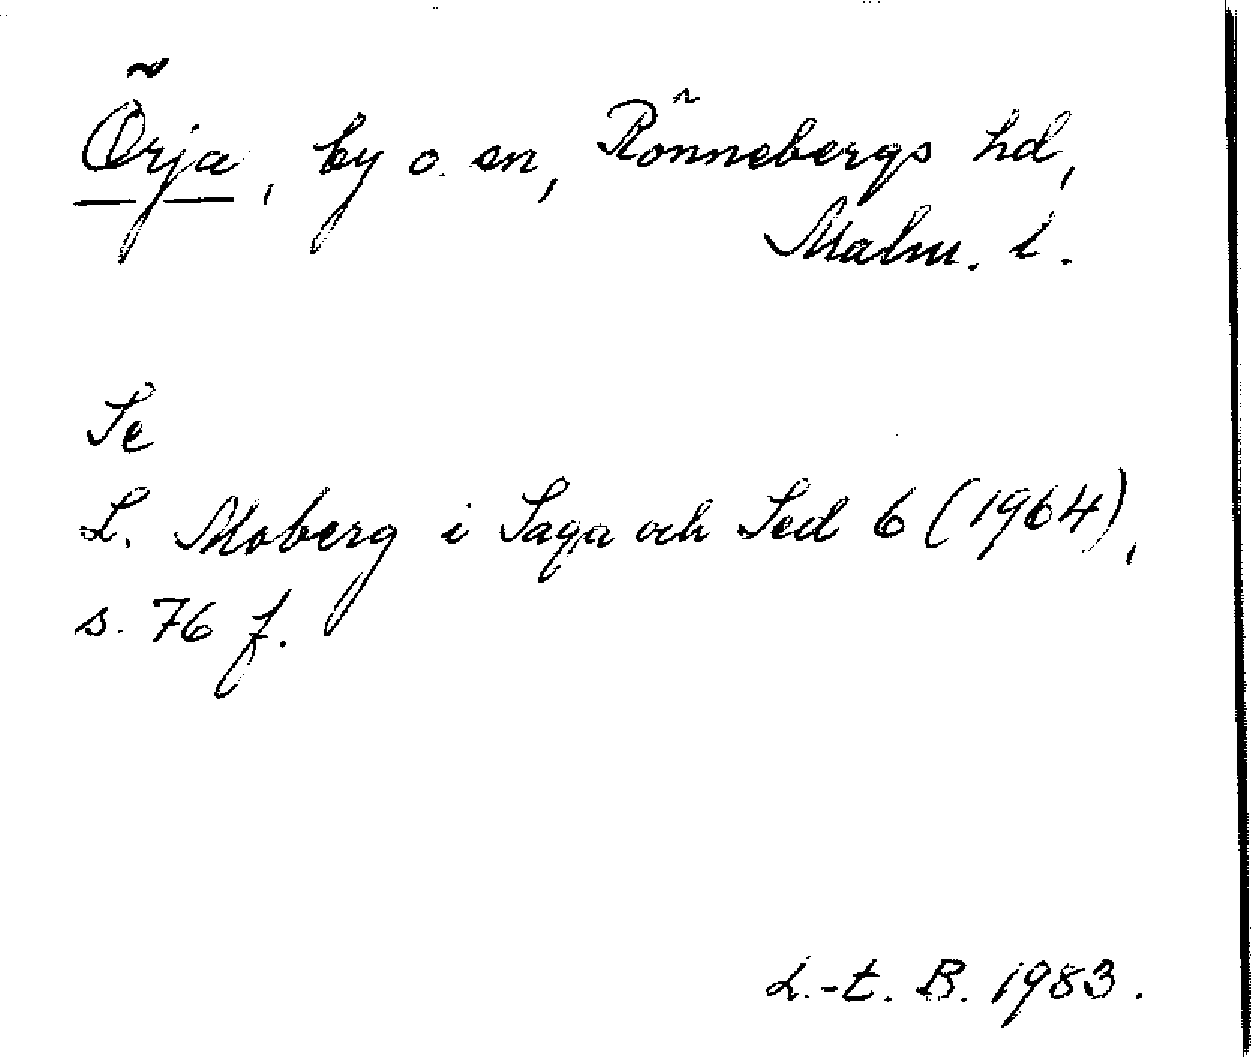 Örja, by o. sn, Rönnebergs hd,
Malm. l.
Se
L. Moberg i Saga och Sed 6 (1964),
s. 76 f.
L.-t. B. 1983.